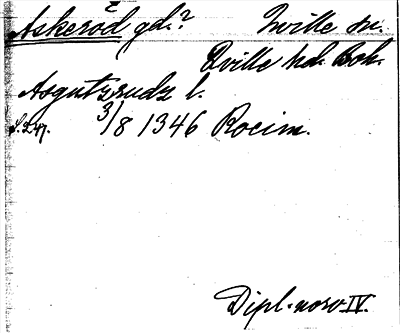 Askeröd gd.? Tville sn.
Qville hd. Boh.
Asgutzrudz l.
S. 247. 3/8 1346 Rocim.
Dipl. norv IV.